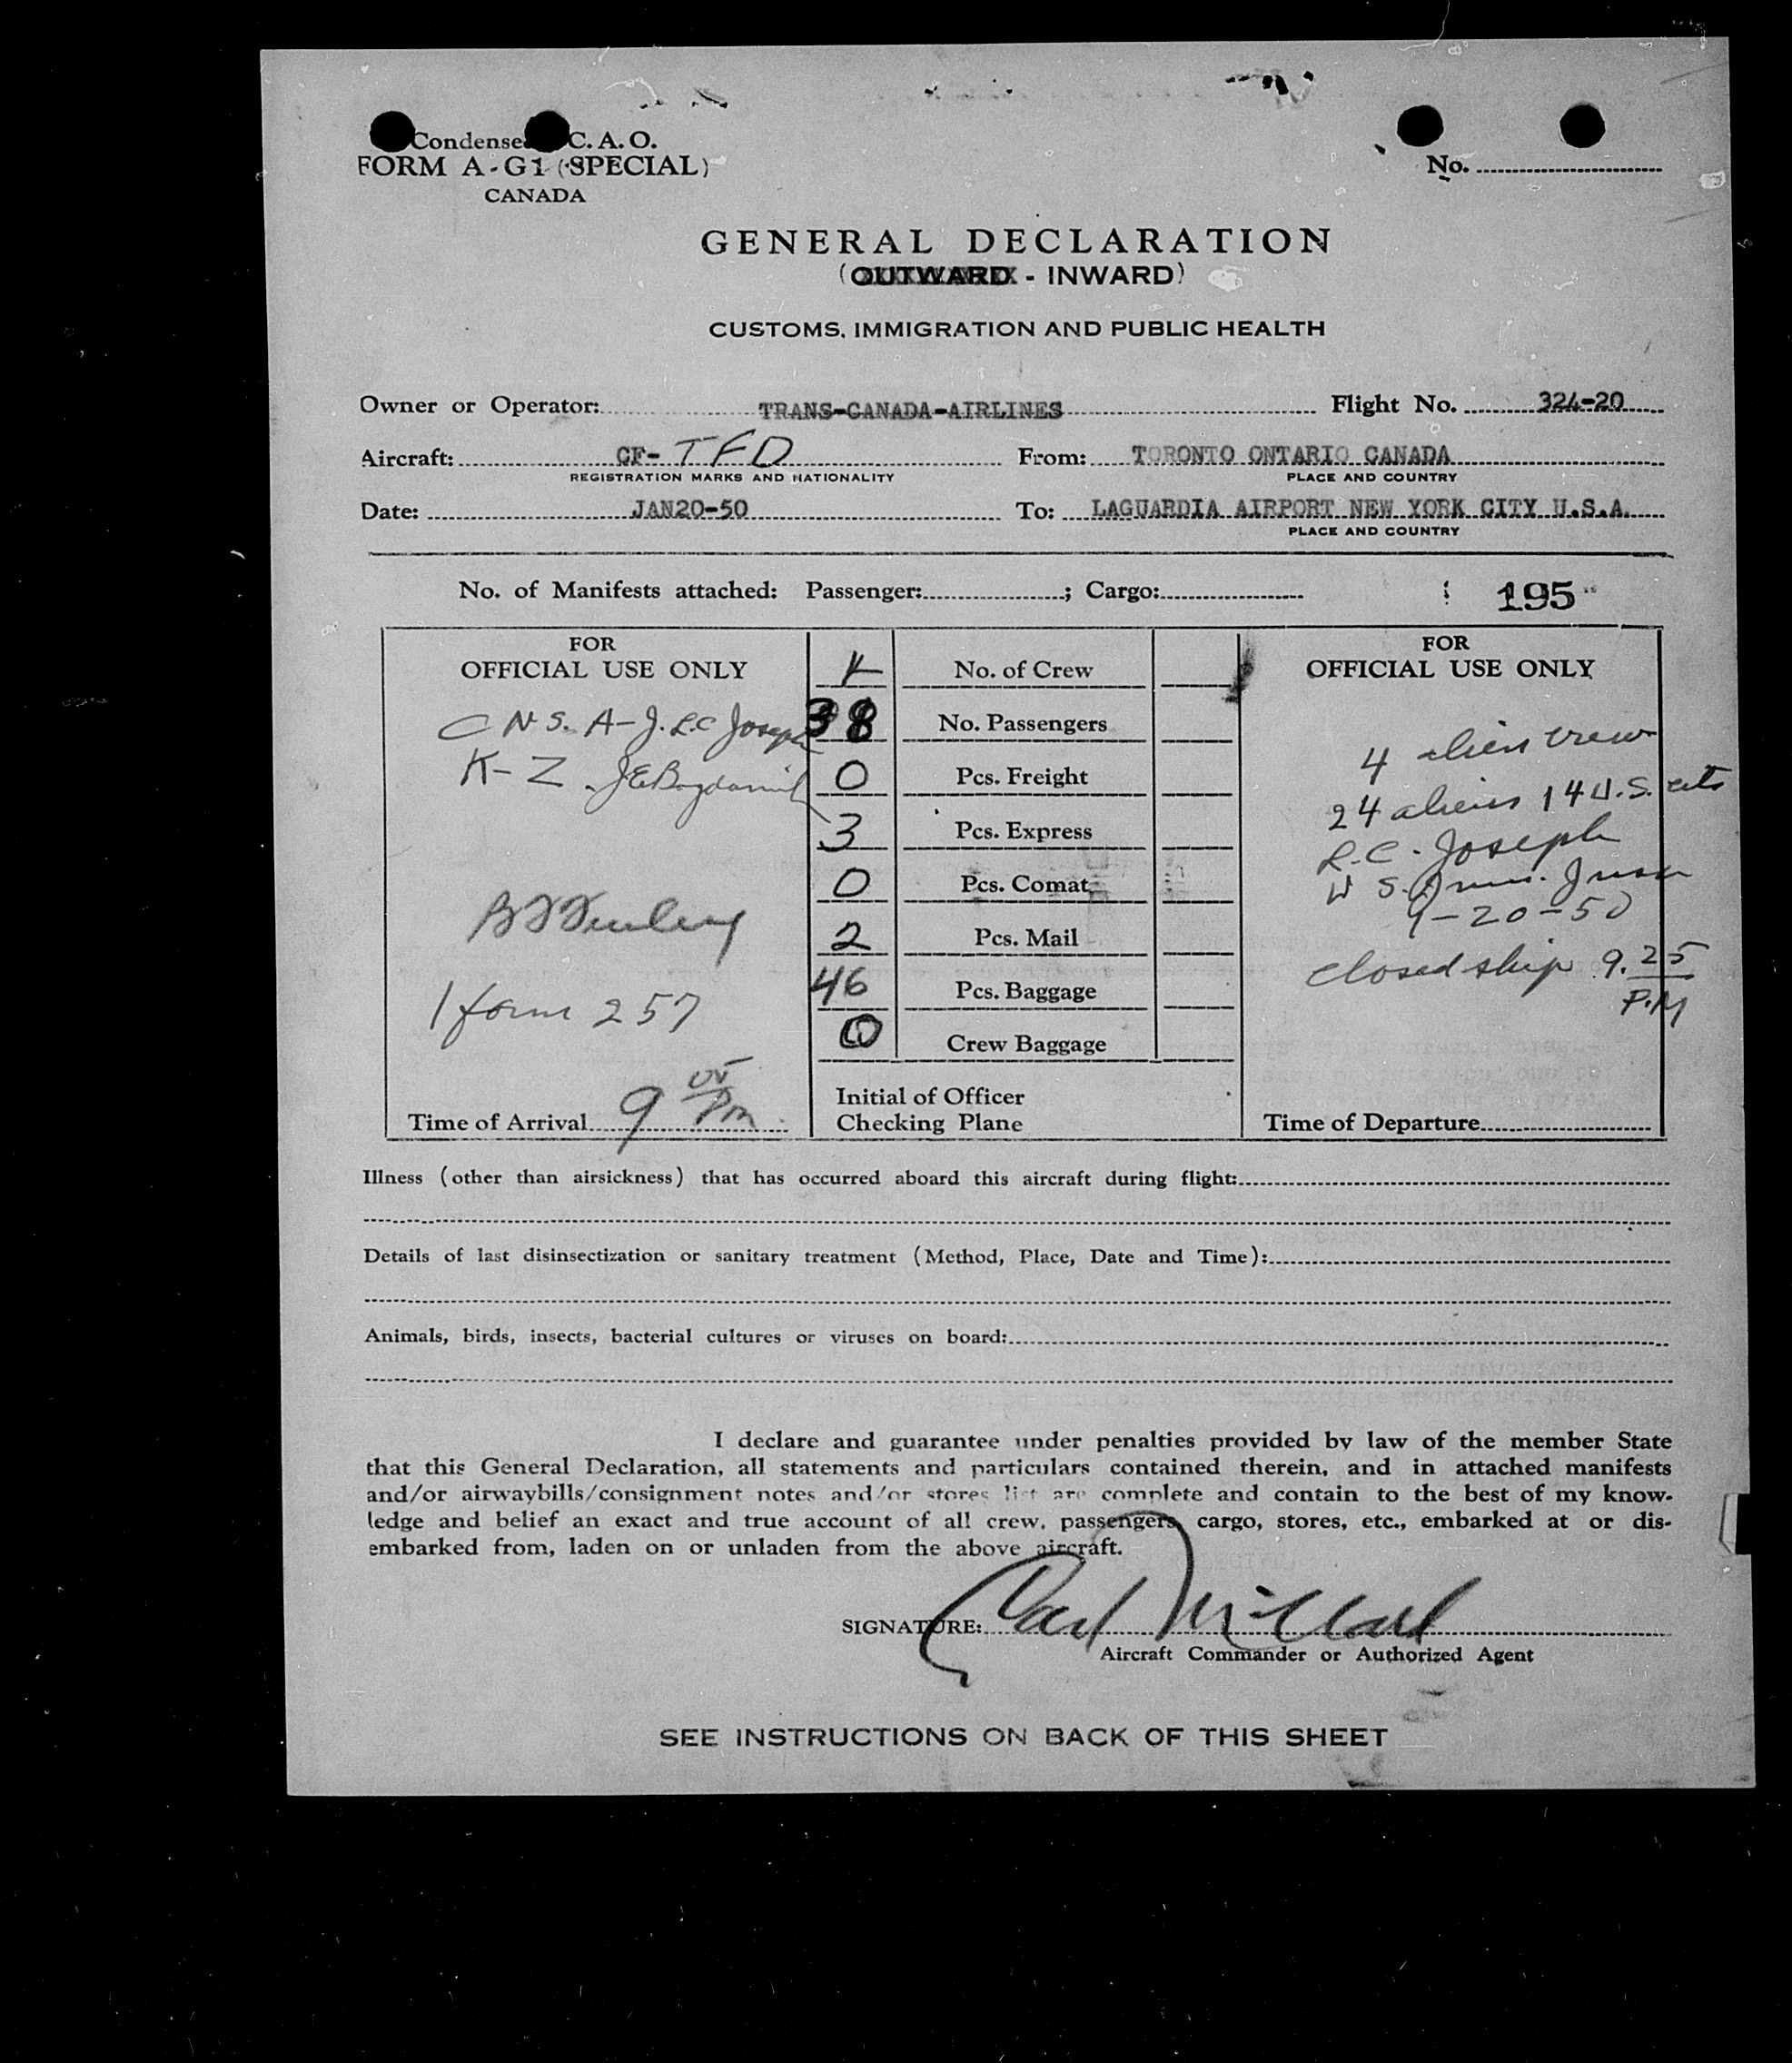 Condensed C. A. O.
FORM A-G1 (SPECIAL)
CANADA
No.
GENERAL DECLARATION
(OUTWARD - INWARD)
CUSTOMS, IMMIGRATION AND PUBLIC HEALTH
Owner or Operator: TRANS-CANADA-AIRLINES Flight No. 324-20
Aircraft: CF-TFD From: TORONTO ONTARIO CANADA
REGISTRATION MARKS AND NATIONALITY PLACE AND COUNTRY
Date: JAN20-50 To: LAGUARDIA AIRPORT NEW YORK CITY U.S.A.
PLACE AND COUNTRY
No. of Manifests attached: Passenger: ; Cargo: 195
FOR
OFFICIAL USE ONLY
C N S. A-J. R.C Joseph
K-Z
1 form 257
Time of Arrival 9 05 Pm
4 No. of Crew
38 No. Passengers
0 Pcs. Freight
3 Pcs. Express
0 Pcs. Comat
2 Pcs. Mail
46 Pcs. Baggage
0 Crew Baggage
Initial of Officer
Checking Plane
FOR
OFFICIAL USE ONLY
4 alien crew
24 aliens 14 U.S. cits
R.C. Joseph
U S. Imm.
1-20-50
closed ship 9.25
P.M
Time of Departure
Illness (other than airsickness) that has occurred aboard this aircraft during flight:
Details of last disinsectization or sanitary treatment (Method, Place, Date and Time):
Animals, birds, insects, bacterial cultures or viruses on board:
I declare and guarantee under penalties provided by law of the member State
that this General Declaration, all statements and particulars contained therein, and in attached manifests
and/or airwaybills/consignment notes and/or stores list are complete and contain to the best of my know-
ledge and belief an exact and true account of all crew, passengers, cargo, stores, etc., embarked at or dis-
embarked from, laden on or unladen from the above aircraft.
SIGNATURE: Carl Millard
Aircraft Commander or Authorized Agent
SEE INSTRUCTIONS ON BACK OF THIS SHEET